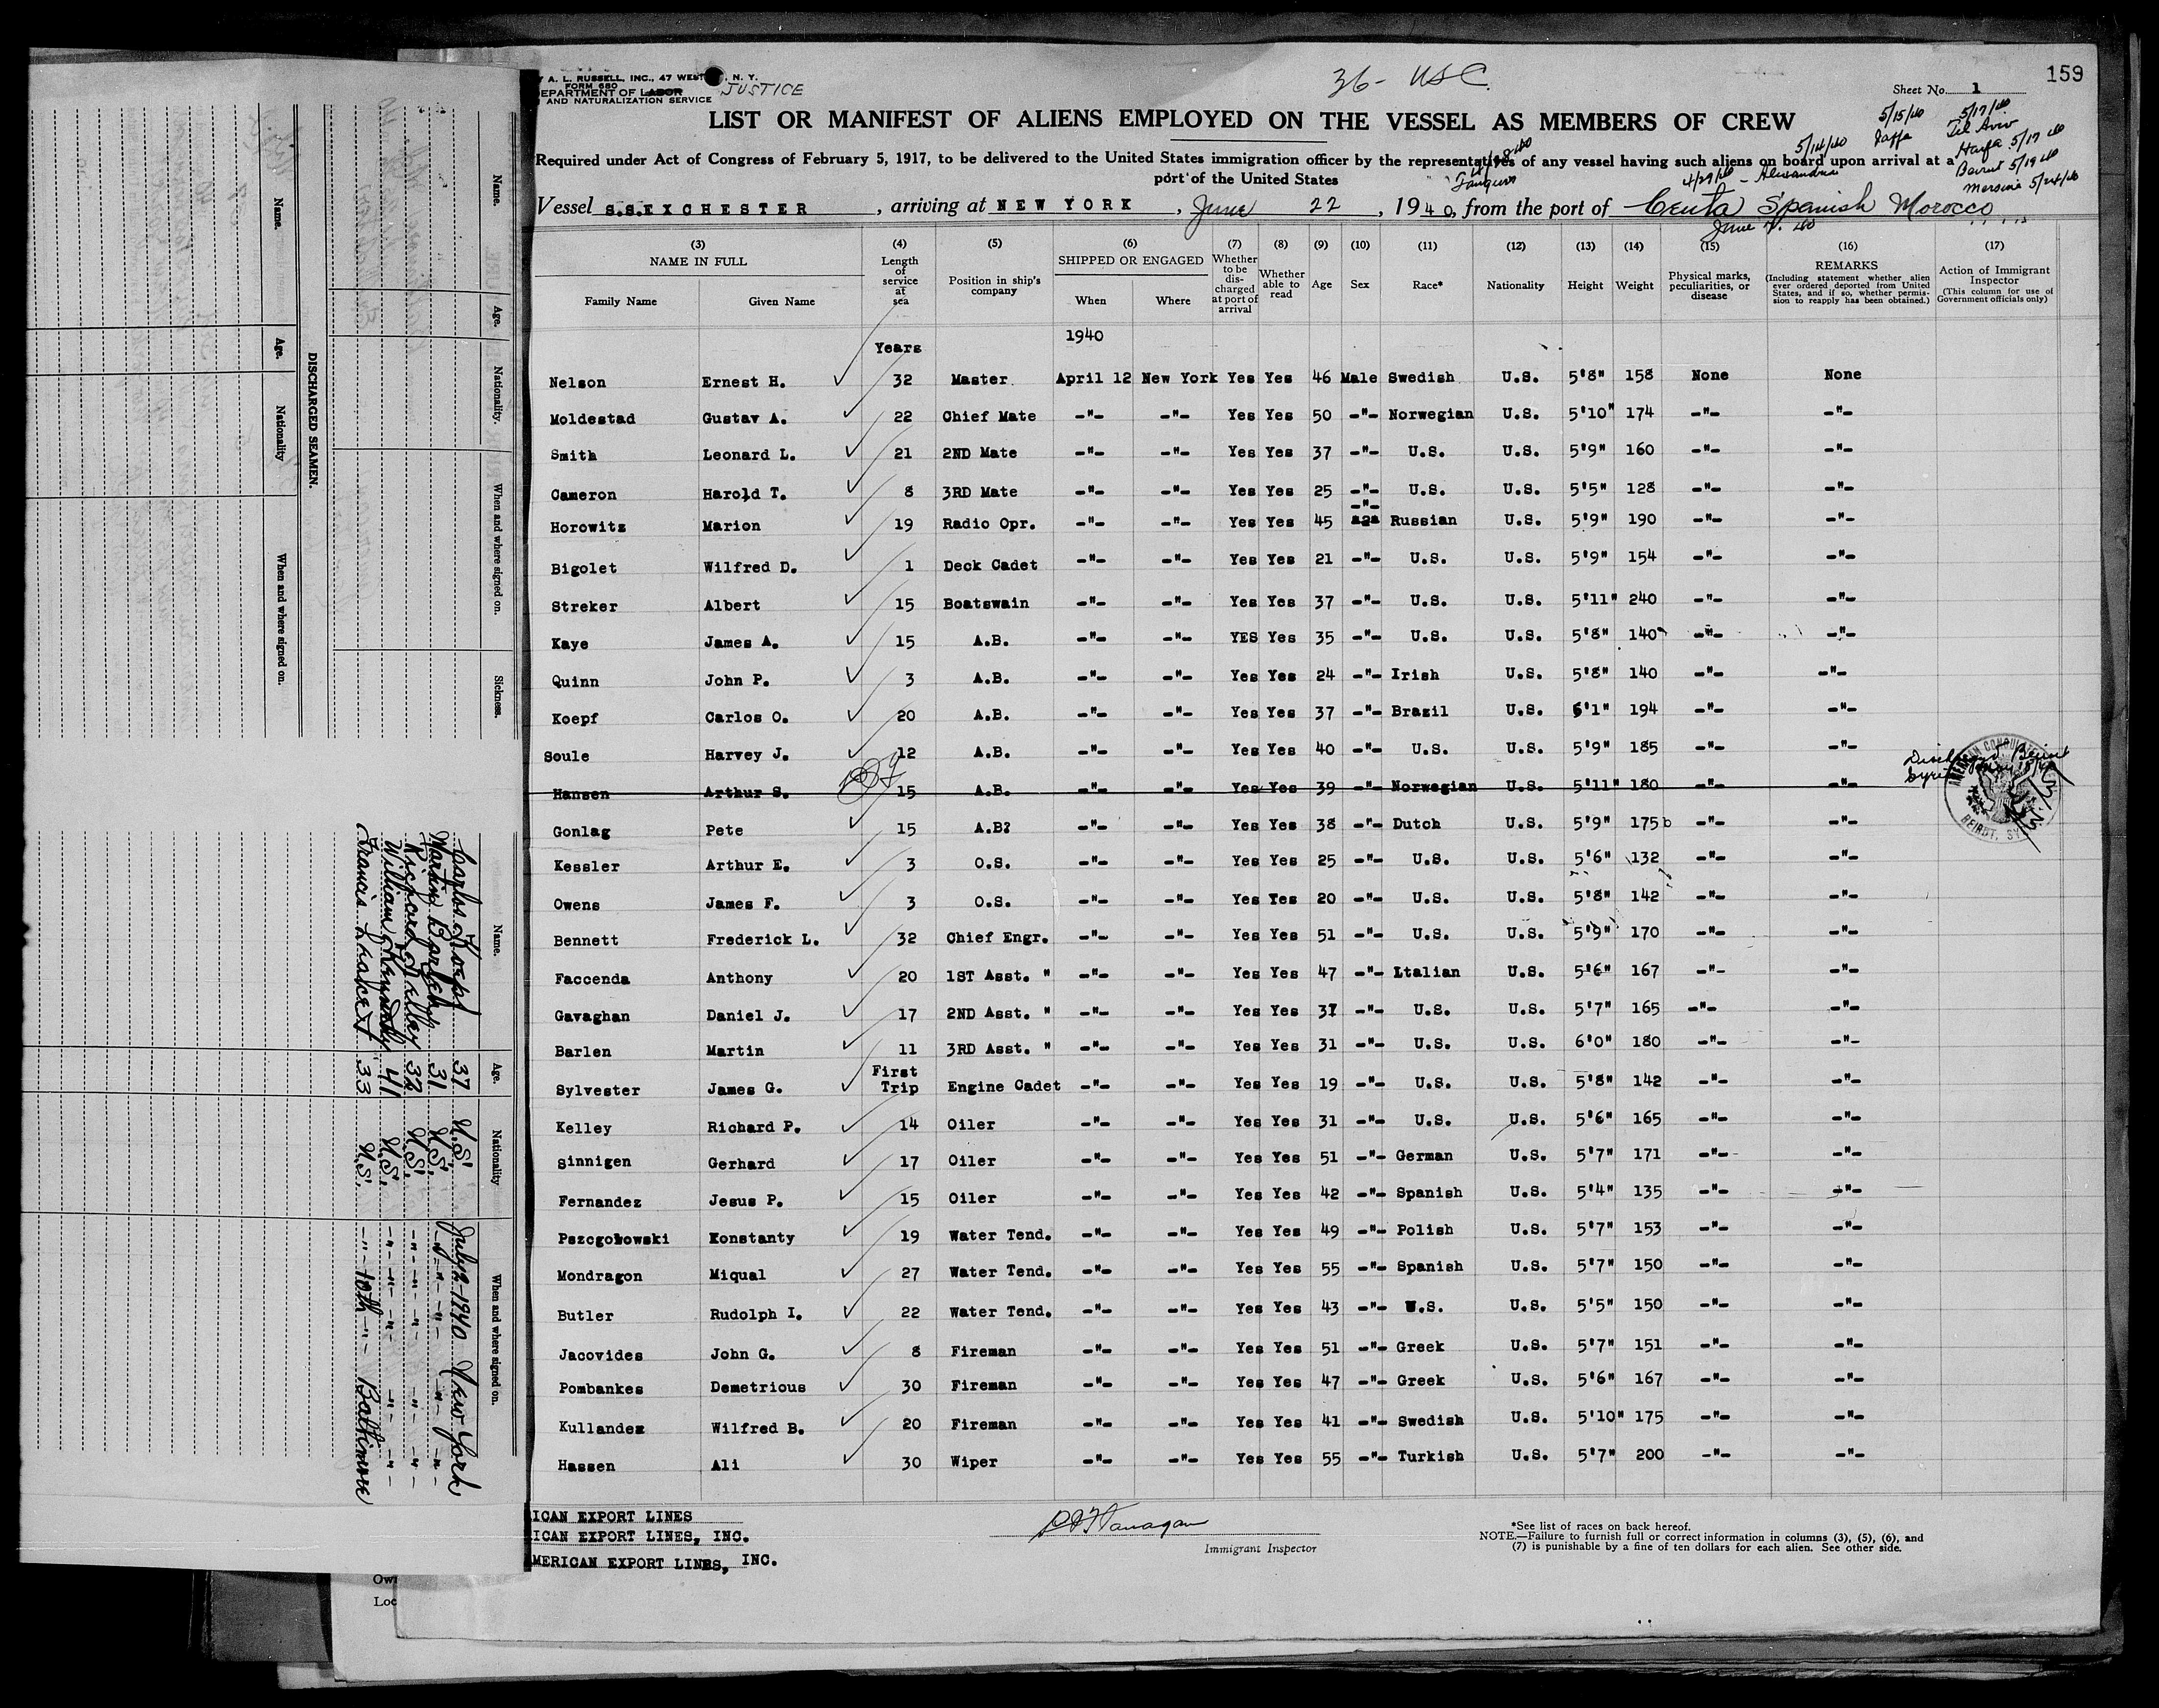 159
36 - USC
Y A. L. RUSSELL, INC., 47 WEST , N. Y.
FORM 680
DEPARTMENT OF LABOR JUSTICE
AND NATURALIZATION SERVICE
Sheet No. 1
LIST OR MANIFEST OF ALIENS EMPLOYED ON THE VESSEL AS MEMBERS OF CREW
5/15/40 Jaffa
5/17/40 Tel Aviv
Haifa 5/17 40
Beirut 5/19 40
Mersine 5/24/40
5/14/40
4/29/40 - Alexandria
Required under Act of Congress of February 5, 1917, to be delivered to the United States immigration officer by the representatives of any vessel having such aliens on board upon arrival at a
port of the United States
Vessel S.S.EXCHESTER, arriving at NEW YORK, June 22, 1940, from the port of Ceuta Spanish Morocco
(3) (4) (5) (6) (7) (8) (9) (10) (11) (12) (13) (14) (15) (16) (17)
NAME IN FULL
Family Name Given Name
Length of service at sea
Position in ship's company
SHIPPED OR ENGAGED
When Where
Whether to be discharged at port of arrival
Whether able to read
Age Sex Race* Nationality Height Weight
Physical marks, peculiarities, or disease
REMARKS
(Including statement whether alien ever ordered deported from United States, and if so, whether permission to reapply has been obtained.)
Action of Immigrant Inspector
(This column for use of Government officials only)
1940
Years
Nelson Ernest H. 32 Master April 12 New York Yes Yes 46 Male Swedish U.S. 5'8" 158 None None
Moldestad Gustav A. 22 Chief Mate -"- -"- Yes Yes 50 -"- Norwegian U.S. 5'10" 174 -"- -"-
Smith Leonard L. 21 2ND Mate -"- -"- Yes Yes 37 -"- U.S. U.S. 5'9" 160 -"- -"-
Cameron Harold T. 8 3RD Mate -"- -"- Yes Yes 25 -"- U.S. U.S. 5'5" 128 -"- -"-
Horowitz Marion 19 Radio Opr. -"- -"- Yes Yes 45 -"- Russian U.S. 5'9" 190 -"- -"-
Bigolet Wilfred D. 1 Deck Cadet -"- -"- Yes Yes 21 -"- U.S. U.S. 5'9" 154 -"- -"-
Streker Albert 15 Boatswain -"- -"- Yes Yes 37 -"- U.S. U.S. 5'11" 240 -"- -"-
Kaye James A. 15 A.B. -"- -"- YES Yes 35 -"- U.S. U.S. 5'8" 140 -"- -"-
Quinn John P. 3 A.B. -"- -"- Yes Yes 24 -"- Irish U.S. 5'8" 140 -"- -"-
Koepf Carlos O. 20 A.B. -"- -"- Yes Yes 37 -"- Brazil U.S. 6'1" 194 -"- -"-
Soule Harvey J. 12 A.B. -"- -"- Yes Yes 40 -"- U.S. U.S. 5'9" 185 -"- -"-
Hansen Arthur S. 15 A.B. -"- -"- Yes Yes 39 -"- Norwegian U.S. 5'11" 180 -"- -"-
Gonlag Pete 15 A.B? -"- -"- Yes Yes 38 -"- Dutch U.S. 5'9" 175b -"- -"-
Kessler Arthur E. 3 O.S. -"- -"- Yes Yes 25 -"- U.S. U.S. 5'6" 132 -"- -"-
Owens James F. 3 O.S. -"- -"- Yes Yes 20 -"- U.S. U.S. 5'8" 142 -"- -"-
Bennett Frederick L. 32 Chief Engr. -"- -"- Yes Yes 51 -"- U.S. U.S. 5'9" 170 -"- -"-
Faccenda Anthony 20 1ST Asst. " -"- -"- Yes Yes 47 -"- Italian U.S. 5'6" 167 -"- -"-
Gavaghan Daniel J. 17 2ND Asst. " -"- -"- Yes Yes 37 -"- U.S. U.S. 5'7" 165 -"- -"-
Barlen Martin 11 3RD Asst. " -"- -"- Yes Yes 31 -"- U.S. U.S. 6'0" 180 -"- -"-
Sylvester James G. First Trip Engine Cadet -"- -"- Yes Yes 19 -"- U.S. U.S. 5'8" 142 -"- -"-
Kelley Richard P. 14 Oiler -"- -"- Yes Yes 31 -"- U.S. U.S. 5'6" 165 -"- -"-
Sinnigen Gerhard 17 Oiler -"- -"- Yes Yes 51 -"- German U.S. 5'7" 171 -"- -"-
Fernandez Jesus P. 15 Oiler -"- -"- Yes Yes 42 -"- Spanish U.S. 5'4" 135 -"- -"-
Pszcgohowski Konstanty 19 Water Tend. -"- -"- Yes Yes 49 -"- Polish U.S. 5'7" 153 -"- -"-
Mondragon Miqual 27 Water Tend. -"- -"- Yes Yes 55 -"- Spanish U.S. 5'7" 150 -"- -"-
Butler Rudolph I. 22 Water Tend. -"- -"- Yes Yes 43 -"- U.S. U.S. 5'5" 150 -"- -"-
Jacovides John G. 8 Fireman -"- -"- Yes Yes 51 -"- Greek U.S. 5'7" 151 -"- -"-
Pombankes Demetrious 30 Fireman -"- -"- Yes Yes 47 -"- Greek U.S. 5'6" 167 -"- -"-
Kullandez Wilfred B. 20 Fireman -"- -"- Yes Yes 41 -"- Swedish U.S. 5'10" 175 -"- -"-
Hassen Ali 30 Wiper -"- -"- Yes Yes 55 -"- Turkish U.S. 5'7" 200 -"- -"-
AMERICAN CONSULATE
BEIRUT, SY
ICAN EXPORT LINES
ICAN EXPORT LINES, INC.
MERICAN EXPORT LINES, INC.
Immigrant Inspector
*See list of races on back hereof.
NOTE.—Failure to furnish full or correct information in columns (3), (5), (6), and
(7) is punishable by a fine of ten dollars for each alien. See other side.
Own
Loc
Name. Age. Nationality. When and where signed on. Sickness.
DISCHARGED SEAMEN.
Name. Age. Nationality When and where signed on.
Name. Age. Nationality When and where signed on.
Carlos Koepf 37 U.S. July 2-1940 New York
Martin Barlen 31 U.S. -"- -"-
Richard Kelley 32 U.S. -"- -"-
William Kennedy 41 U.S. -"- -"-
Francis 33 U.S. -"- 10th -"- Baltimore